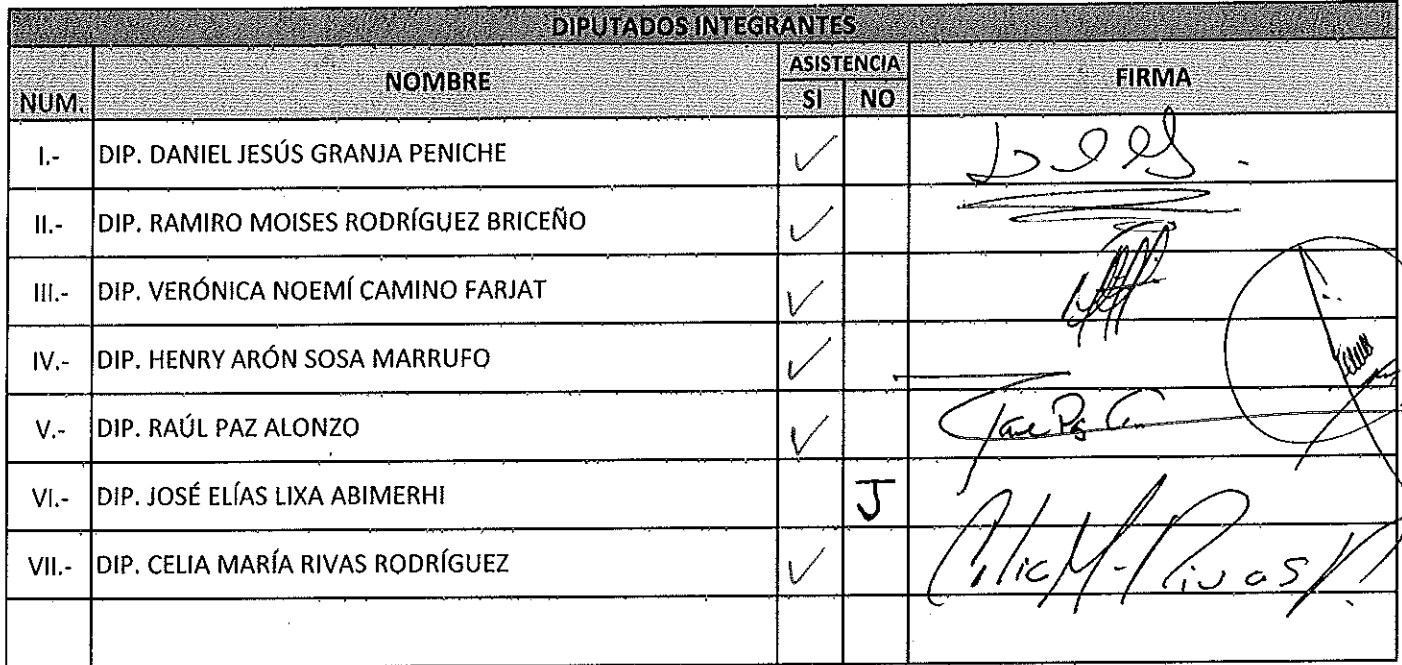 DIPUTADOS INTEGRANTES
NUM. NOMBRE ASISTENCIA FIRMA
SI NO
I.- DIP. DANIEL JESÚS GRANJA PENICHE ✓
II.- DIP. RAMIRO MOISES RODRÍGUEZ BRICEÑO ✓
III.- DIP. VERÓNICA NOEMÍ CAMINO FARJAT ✓
IV.- DIP. HENRY ARÓN SOSA MARRUFO ✓
V.- DIP. RAÚL PAZ ALONZO ✓
VI.- DIP. JOSÉ ELÍAS LIXA ABIMERHI J
VII.- DIP. CELIA MARÍA RIVAS RODRÍGUEZ ✓ Celia M. Rivas R.